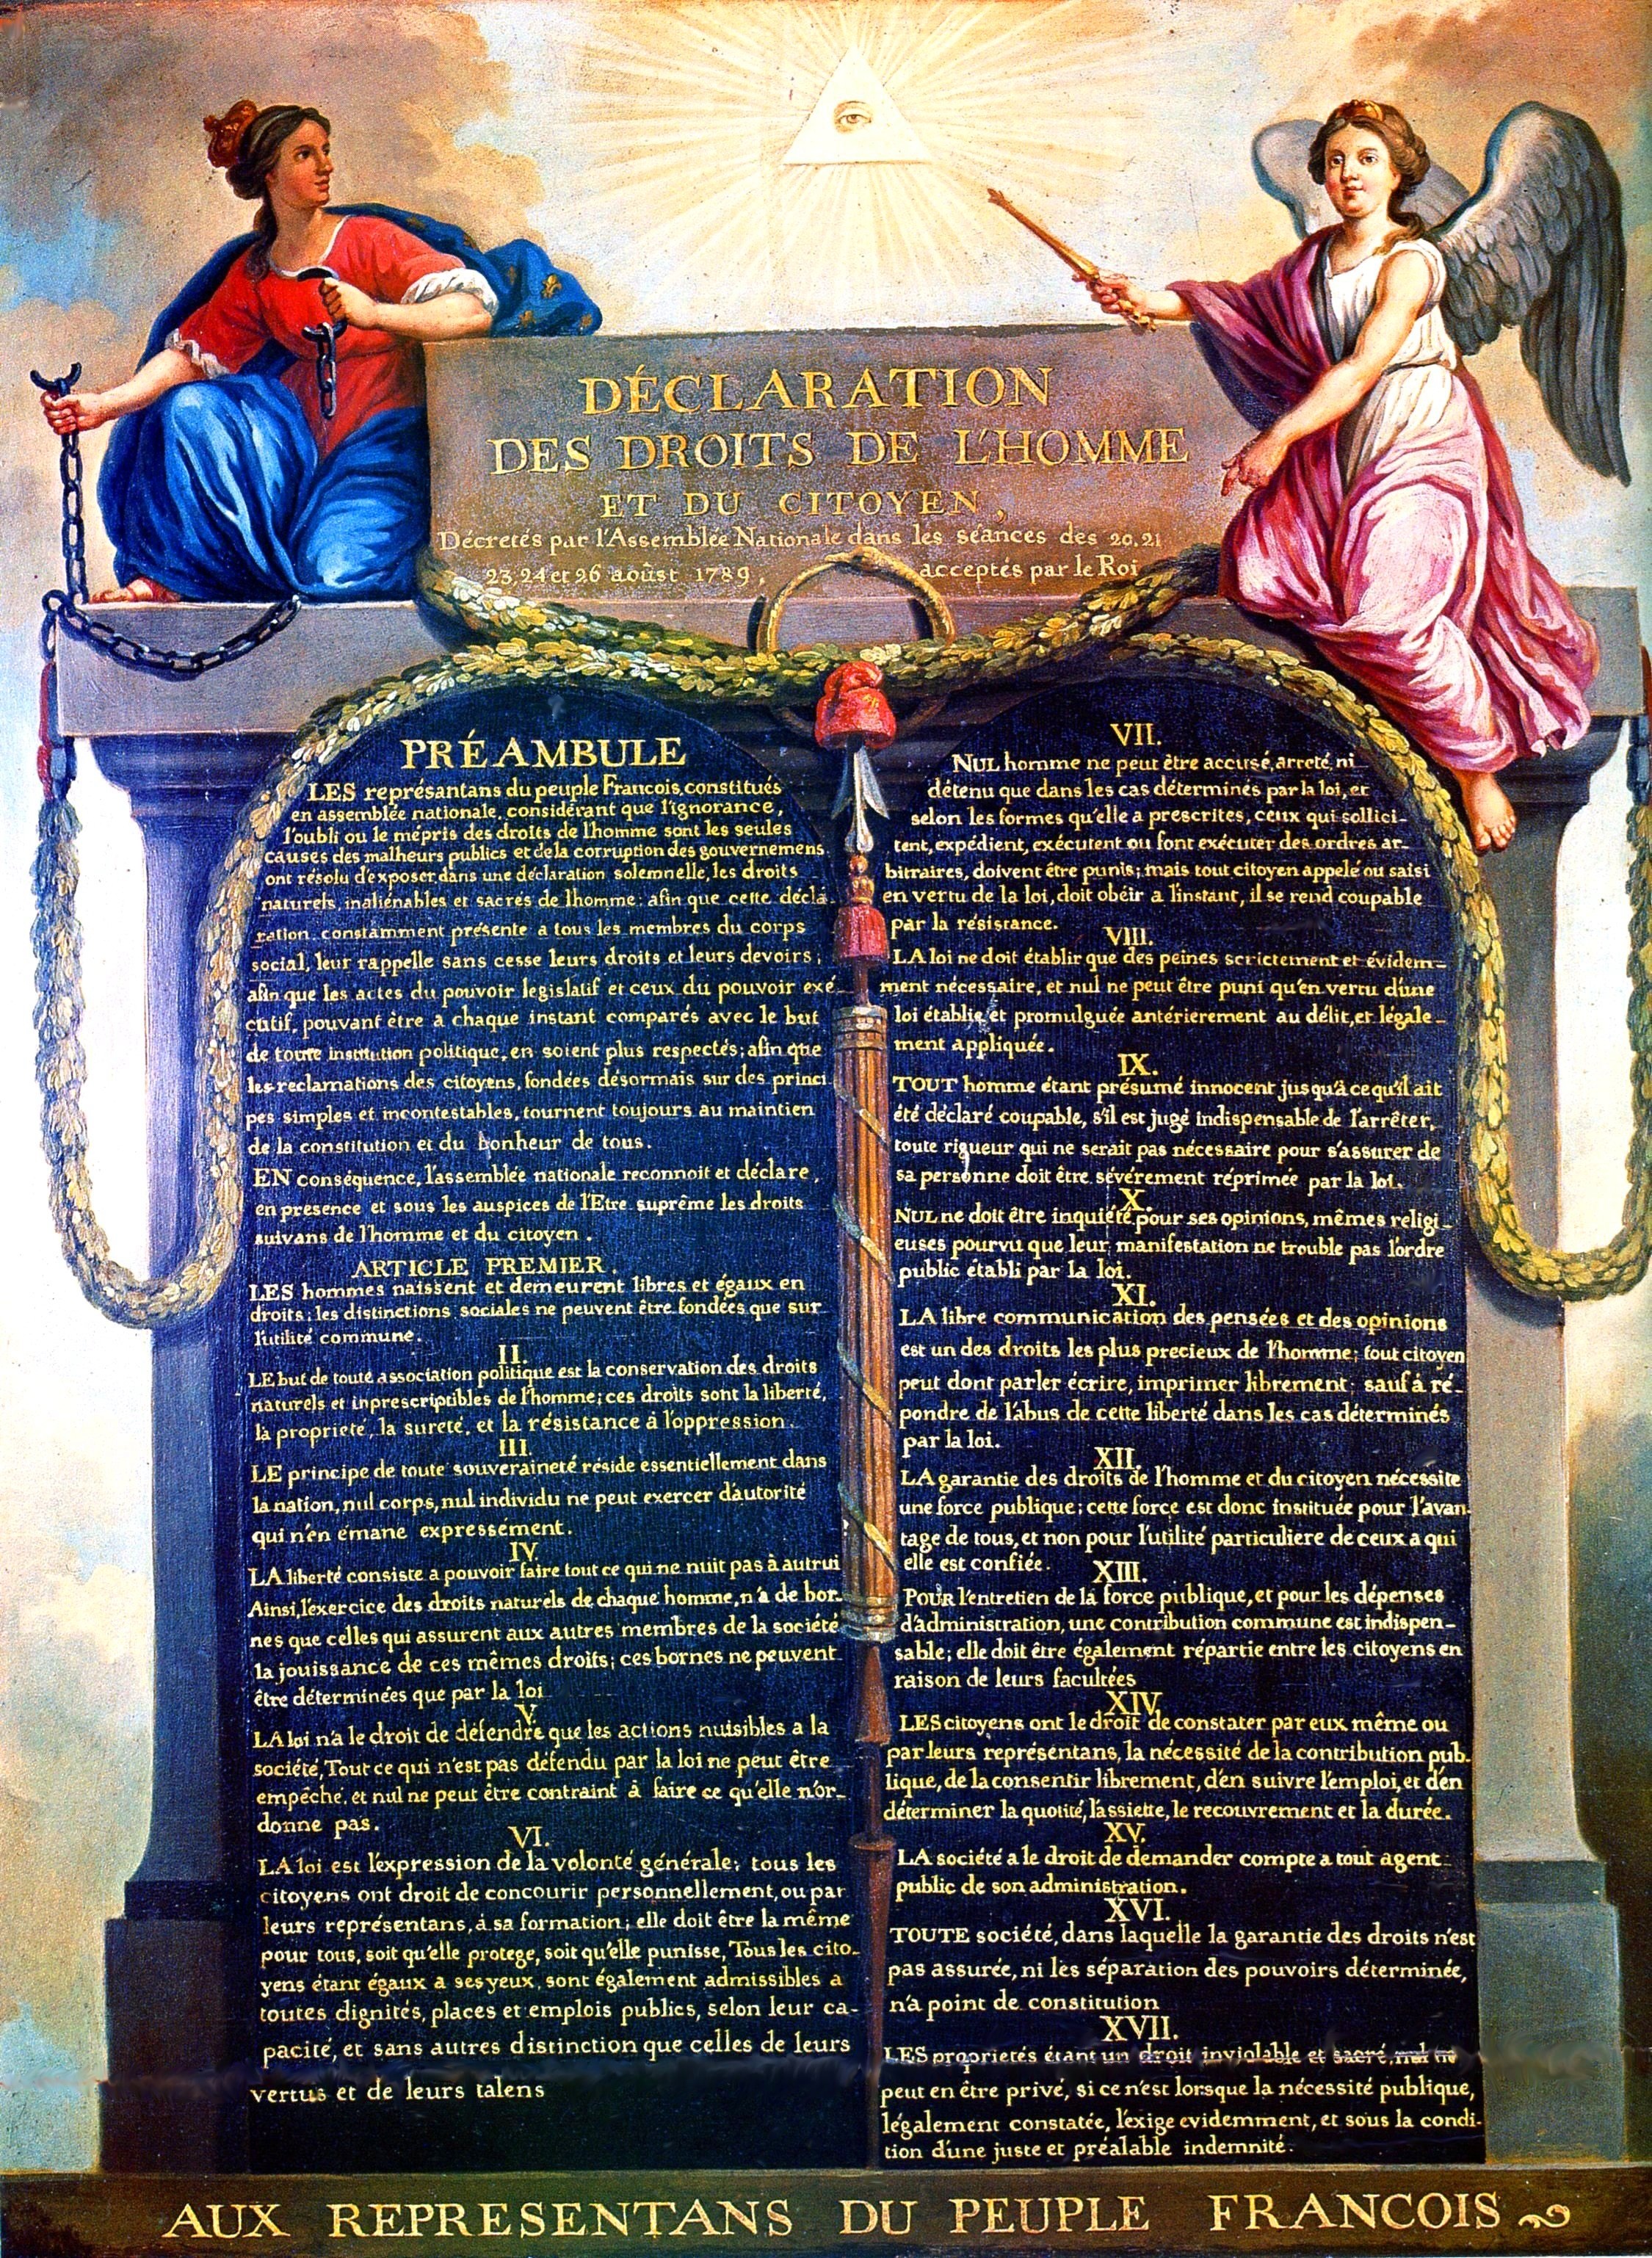 DÉCLARATION
DES DROITS DE L'HOMME
ET DU CITOYEN,
Décretés par l'Assemblée Nationale dans les séances des 20, 21
23, 24 et 26 aoûst 1789, acceptés par le Roi
PRÉAMBULE
LES représantans du peuple Francois, constitués
en assemblée nationale, considérant que l'ignorance,
l'oubli ou le mépris des droits de l'homme sont les seules
causes des malheurs publics et de la corruption des gouvernemens
ont résolu d'exposer, dans une déclaration solemnelle, les droits
naturels, inaliénables et sacrés de l'homme: afin que cette décla-
ration, constamment présente a tous les membres du corps
social, leur rappelle sans cesse leurs droits et leurs devoirs;
afin que les actes du pouvoir legislatif et ceux du pouvoir exé-
cutif, pouvant être a chaque instant comparés avec le but
de toute institution politique, en soient plus respectés; afin que
les reclamations des citoyens, fondées désormais sur des princi
pes simples et incontestables, tournent toujours au maintien
de la constitution et du bonheur de tous.
EN conséquence, l'assemblée nationale reconnoit et déclare,
en presence et sous les auspices de l'Etre suprême les droits
suivans de l'homme et du citoyen.
ARTICLE PREMIER.
LES hommes naissent et demeurent libres et égaux en
droits; les distinctions sociales ne peuvent être fondées que sur
l'utilité commune.
II.
LE but de toute association politique est la conservation des droits
naturels et inprescriptibles de l'homme; ces droits sont la liberté,
la proprieté, la sureté, et la résistance à l'oppression.
III.
LE principe de toute souveraineté réside essentiellement dans
la nation, nul corps, nul individu ne peut exercer d'autorité
qui n'en émane expressément.
IV.
LA liberté consiste a pouvoir faire tout ce qui ne nuit pas à autrui
Ainsi, l'exercice des droits naturels de chaque homme, n'a de bor-
nes que celles qui assurent aux autres membres de la société
la jouissance de ces mêmes droits; ces bornes ne peuvent
être déterminées que par la loi
V.
LA loi n'a le droit de défendre que les actions nuisibles a la
société, Tout ce qui n'est pas défendu par la loi ne peut être
empêché, et nul ne peut être contraint à faire ce qu'elle n'or-
donne pas.
VI.
LA loi est l'expression de la volonté générale; tous les
citoyens ont droit de concourir personnellement, ou par
leurs représentans, à sa formation; elle doit être la même
pour tous, soit qu'elle protege, soit qu'elle punisse, Tous les cito-
yens étant égaux a ses yeux, sont également admissibles a
toutes dignités, places et emplois publics, selon leur ca-
pacité, et sans autres distinction que celles de leurs
vertus et de leurs talens
VII.
NUL homme ne peut être accusé, arreté, ni
détenu que dans les cas déterminés par la loi, et
selon les formes qu'elle a prescrites, ceux qui sollici-
tent, expédient, exécutent ou font exécuter des ordres ar-
bitraires, doivent être punis; mais tout citoyen appelé ou saisi
en vertu de la loi, doit obéir a l'instant, il se rend coupable
par la résistance.
VIII.
LA loi ne doit établir que des peines strictement et évidem-
ment nécessaire, et nul ne peut être puni qu'en vertu d'une
loi établie et promulguée antérierement au délit, et légale-
ment appliquée.
IX.
TOUT homme étant présumé innocent jusqu'à ce qu'il ait
été déclaré coupable, s'il est jugé indispensable de l'arrêter,
toute rigueur qui ne serait pas nécessaire pour s'assurer de
sa personne doit être sévérement réprimée par la loi.
X.
NUL ne doit être inquiété pour ses opinions, mêmes religi-
euses pourvu que leur manifestation ne trouble pas l'ordre
public établi par la loi.
XI.
LA libre communication des pensées et des opinions
est un des droits les plus precieux de l'homme; tout citoyen
peut dont parler écrire, imprimer librement; sauf à ré-
pondre de l'abus de cette liberté dans les cas déterminés
par la loi.
XII.
LA garantie des droits de l'homme et du citoyen nécessite
une force publique; cette force est donc instituée pour l'avan-
tage de tous, et non pour l'utilité particuliere de ceux a qui
elle est confiée.
XIII.
POUR l'entretien de la force publique, et pour les dépenses
d'administration, une contribution commune est indispen-
sable; elle doit être également répartie entre les citoyens en
raison de leurs facultées
XIV.
LES citoyens ont le droit de constater par eux même ou
par leurs représentans, la nécessité de la contribution pub-
lique, de la consentir librement, d'en suivre l'emploi, et d'en
déterminer la quotité, l'assiette, le recouvrement et la durée.
XV.
LA société a le droit de demander compte a tout agent
public de son administration.
XVI.
TOUTE société, dans laquelle la garantie des droits n'est
pas assurée, ni les séparation des pouvoirs déterminée,
n'a point de constitution
XVII.
LES proprietés étant un droit inviolable et sacré, nul ne
peut en être privé, si ce n'est lorsque la nécessité publique,
légalement constatée, l'exige evidemment, et sous la condi-
tion d'une juste et préalable indemnité.
AUX REPRESENTANS DU PEUPLE FRANCOIS